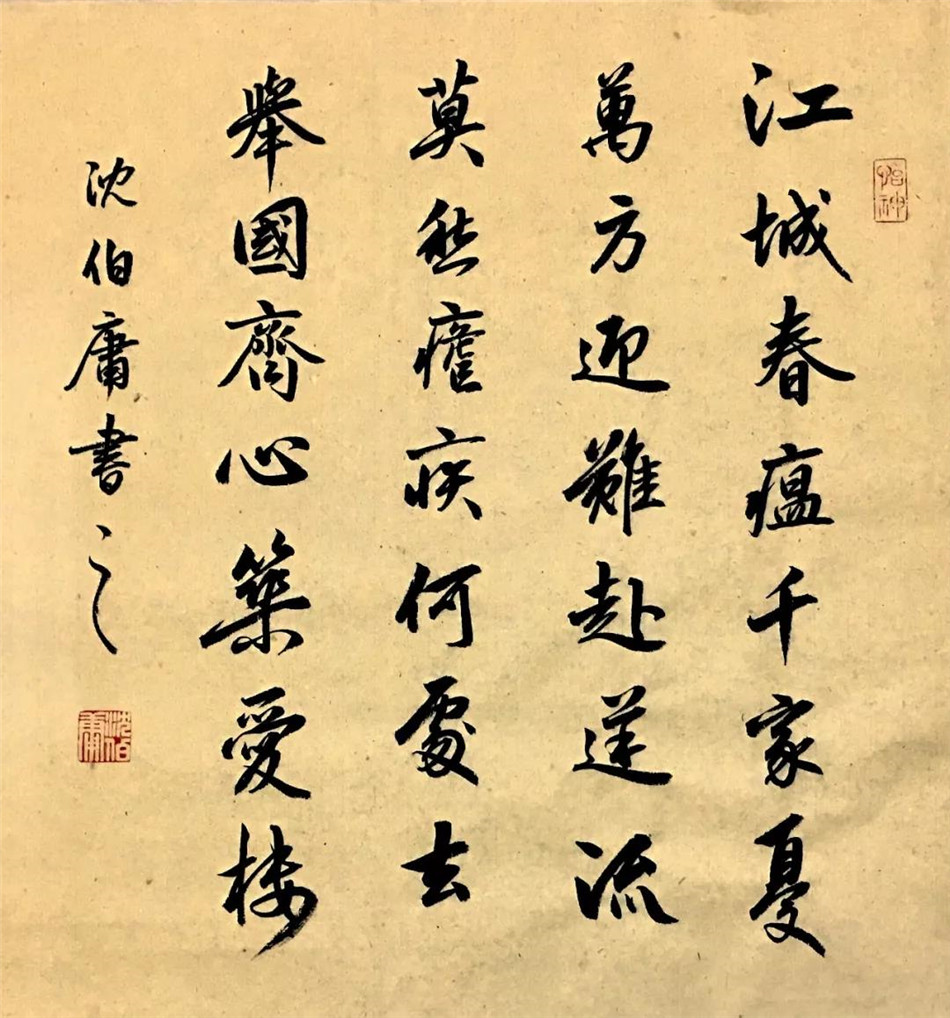 怡神
江城春瘟千家憂
萬方迎難赴逆流
莫愁瘧疾何處去
舉國齊心築愛樓
沈伯庸書之
沈伯庸